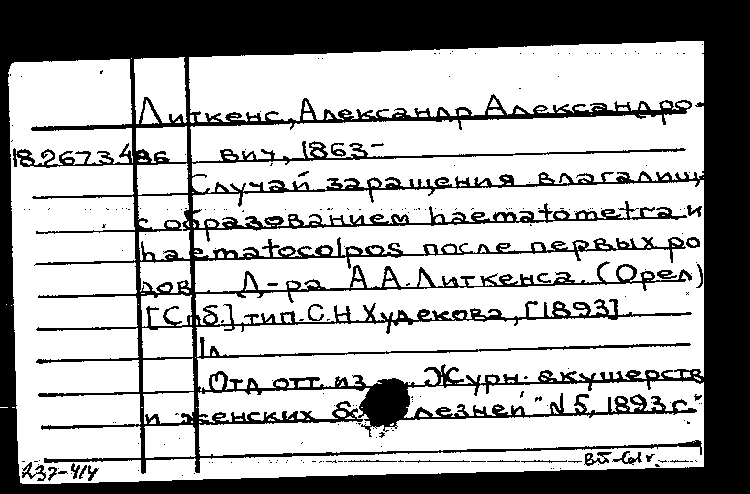 Литкенс, Александр Александро-
18.2673486 вич, 1863-
Случай заращения влагалищ
с образованием haematometra и
haematocolpos после первых ро
дов. Д-ра А.А.Литкенса. (Орел)
[Спб.], тип. С.Н Худекова, [1893].
1л.
"Отд отт. из "Журн. акушерств
и женских болезней" №5, 1893г."
237-414